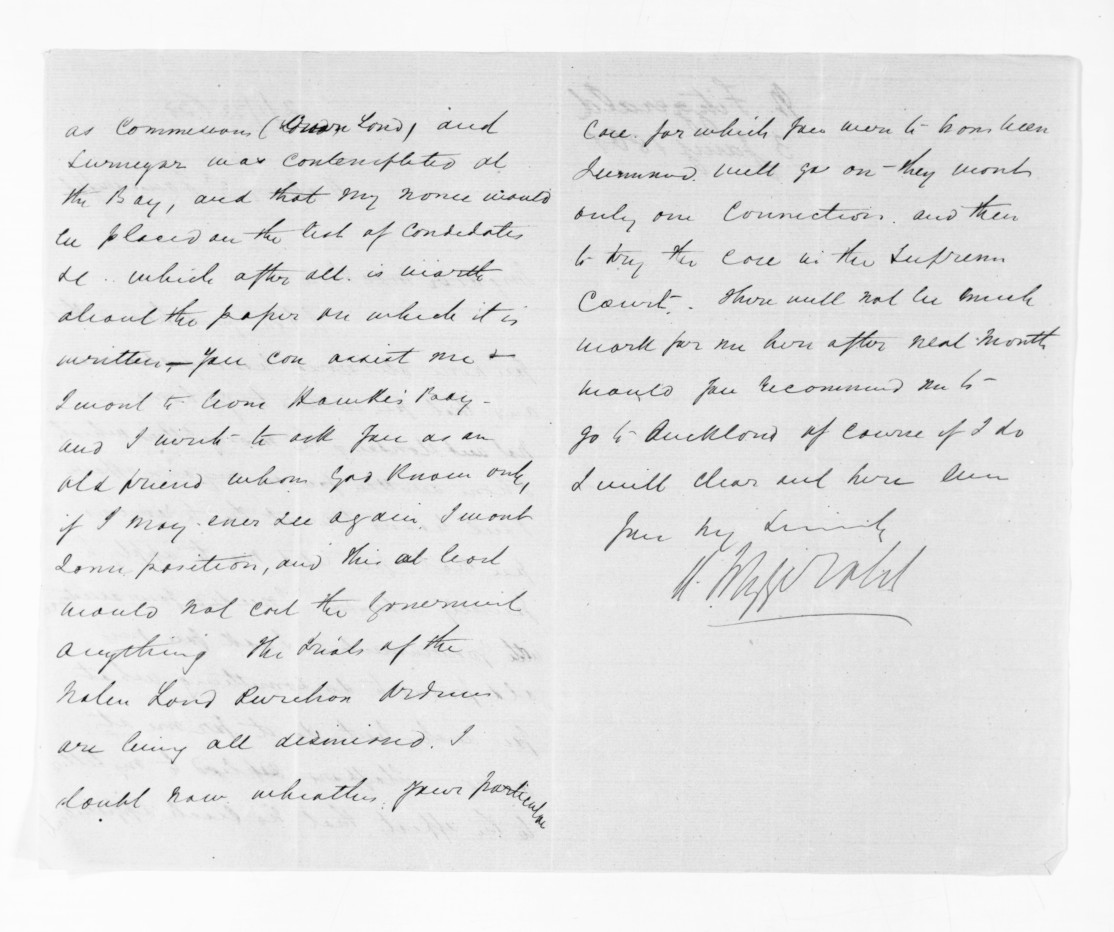 as Commissions (Crown Land) and
Surveyor was contemplated at
the Bay, and that my name would
be placed on the list of Candidates
&c .. which after all is worth
about the paper on which it is
written – You can assist me &
I want to leave Hawkes Bay –
and I write to ask you as an
old friend whom God knows only
if I may ever see again. I want
some position, and this at least
would not cost the Government
anything The trials of the
Native Land Purchase Ordinance
are being all dismissed. I
doubt now wheather your particular
Case for which you were to have been
Summoned will go on – they want
only one Connection and then
to try the Case in the Supreme
Court. There will not be much
work for me here after next Month
would you recommend me to
go to Auckland of course if I do
I will clear out here
Your my Sincerely
Fitzgerald